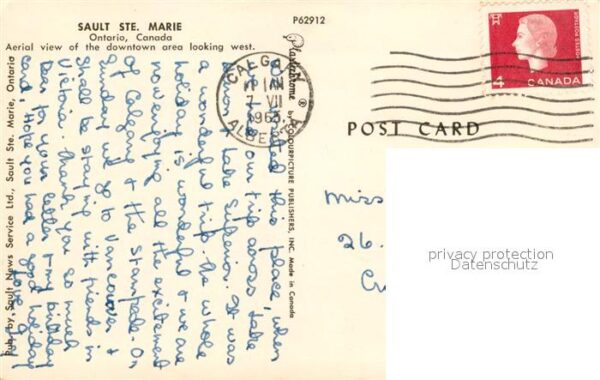 SAULT STE. MARIE
Ontario, Canada
Aerial view of the downtown area looking west.
P62912
Plastichrome ® by COLOURPICTURE PUBLISHERS, INC. Made in Canada
Pub. by, Sault News Service Ltd., Sault Ste. Marie, Ontario
CALGARY
7 VII
1963
ALBERTA
POSTES POSTAGE
4
CANADA
POST CARD
this place, when
our trip across Lake
Huron & Lake Superior. It was
a wonderful trip. The whole
holiday is wonderful & we are
now enjoying all the excitement
of Calgary & the Stampede. On
Sunday we go to Vancouver &
shall be staying with friends in
Victoria. Thank you so much
dear for your letter & my birthday
card, Hope you had a good holiday
Love
Miss
26.
privacy protection
Datenschutz